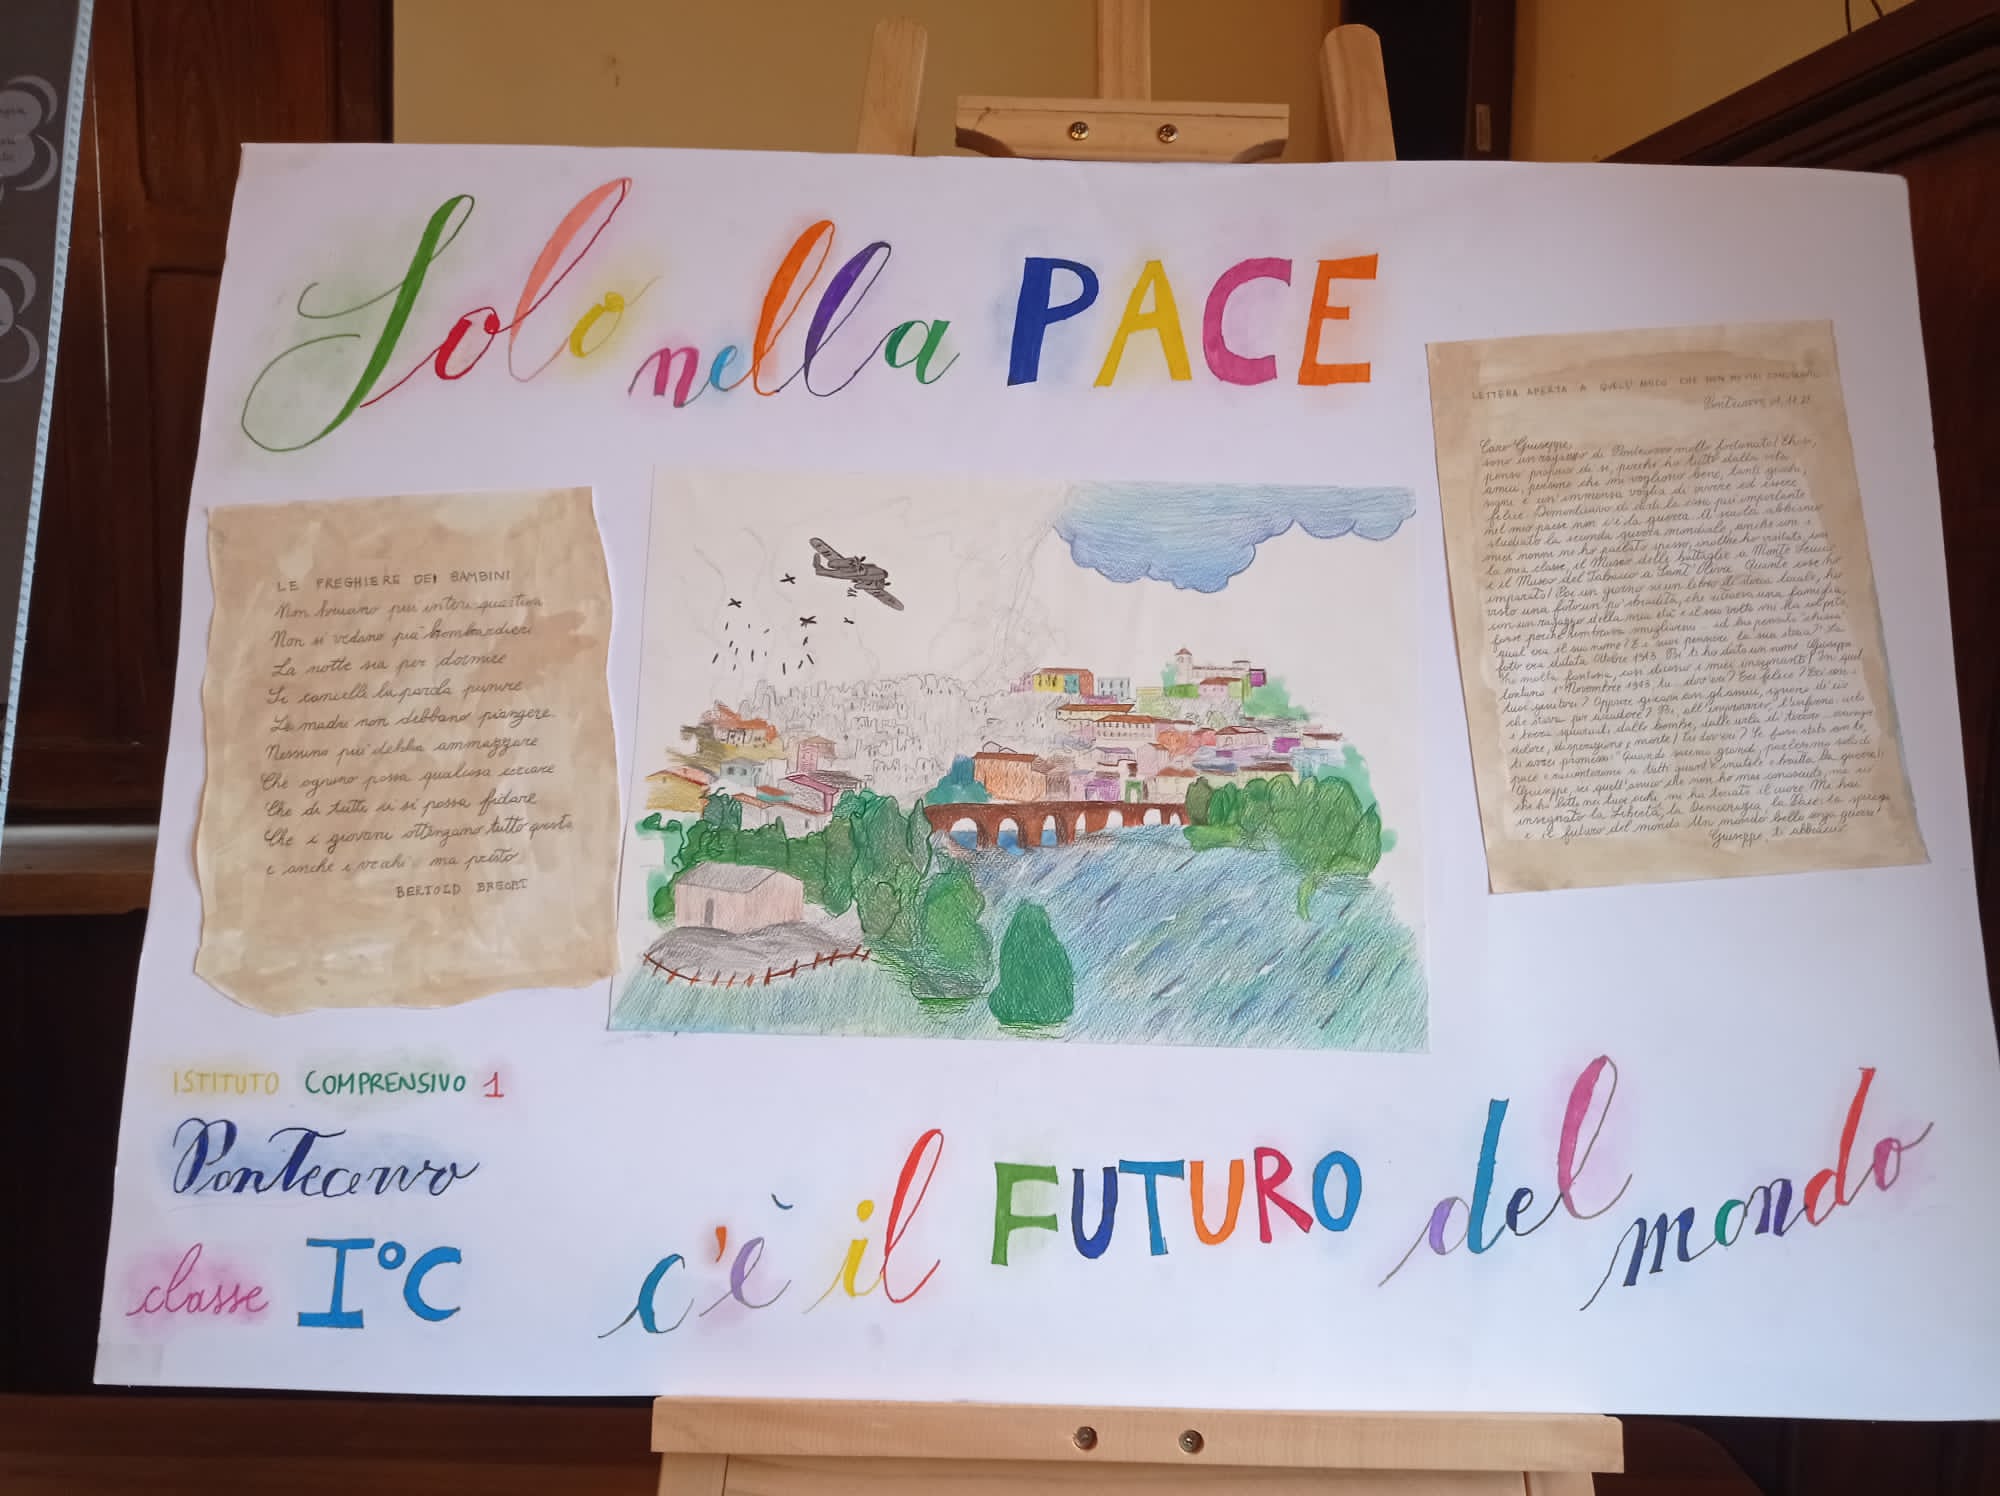 Solo nella PACE
LE PREGHIERE DEI BAMBINI
Non bruciano più interi quartieri
Non si vedano più bombardieri
La notte sia per dormire
Si cancelli la parola punire
Le madri non debbano piangere
Nessuno più debba ammazzare
Che ognuno possa qualcosa creare
Che di tutti ci si possa fidare
Che i giovani ottengano tutto questo
e anche i vecchi ma presto
BERTOLD BRECHT
LETTERA APERTA A QUELL'AMICO CHE NON HO MAI CONOSCIUTO
Pontecorvo
Caro Giuseppe,
sono un ragazzo di Pontecorvo molto fortunato! Eh si,
penso proprio di si, perché ho tutto dalla vita
amici, persone che mi vogliono bene, tanti giochi,
sogni e un'immensa voglia di vivere ed essere
felice. Dimenticavo di dirti la cosa più importante
nel mio paese non c'è la guerra. A scuola abbiamo
studiato la seconda guerra mondiale, anche con i
miei nonni ne ho parlato spesso, inoltre ho visitato con
la mia classe, il Museo delle battaglie a Monte Lungo
e il Museo del Tabacco a Sant'Oliva. Quante cose ho
imparato! Poi un giorno su un libro di storia locale, ho
visto una foto un po' sbiadita, che ritraeva una famiglia,
con un ragazzo della mia età e il suo volto mi ha colpito,
forse perché sembrava ed ho pensato "chissà
qual era il suo nome? E se può pensare la sua storia?" La
foto era datata Ottobre 1943. Poi ti ho dato un nome Giuseppe
molto lontana, così dicono i miei insegnanti! In quel
lontano 1° Novembre 1943, tu dov'eri? Eri felice? Eri con i
tuoi genitori? Oppure giocavi con gli amici, ignaro di ciò
che stava per accadere? Poi, all'improvviso, l'inferno
e terra squarciati dalle bombe, dalle urla di terrore
dolore, disperazione e morte! Tu dov'eri? Se fossi stato con te,
ti avrei promesso: "Quando saremo grandi, parleremo solo di
pace e racconteremo a tutti quant'è inutile e brutta la guerra!
Giuseppe, sei quell'amico che non ho mai conosciuto, ma
che ho letto nei tuoi occhi mi ha toccato il cuore. Mi hai
insegnato la Libertà, la Democrazia la Pace: la speranza
e il futuro del mondo. Un mondo bello senza guerre!
Giuseppe, ti abbraccio
ISTITUTO COMPRENSIVO 1
PonTecorvo
classe I°C
c'è il FUTURO del mondo